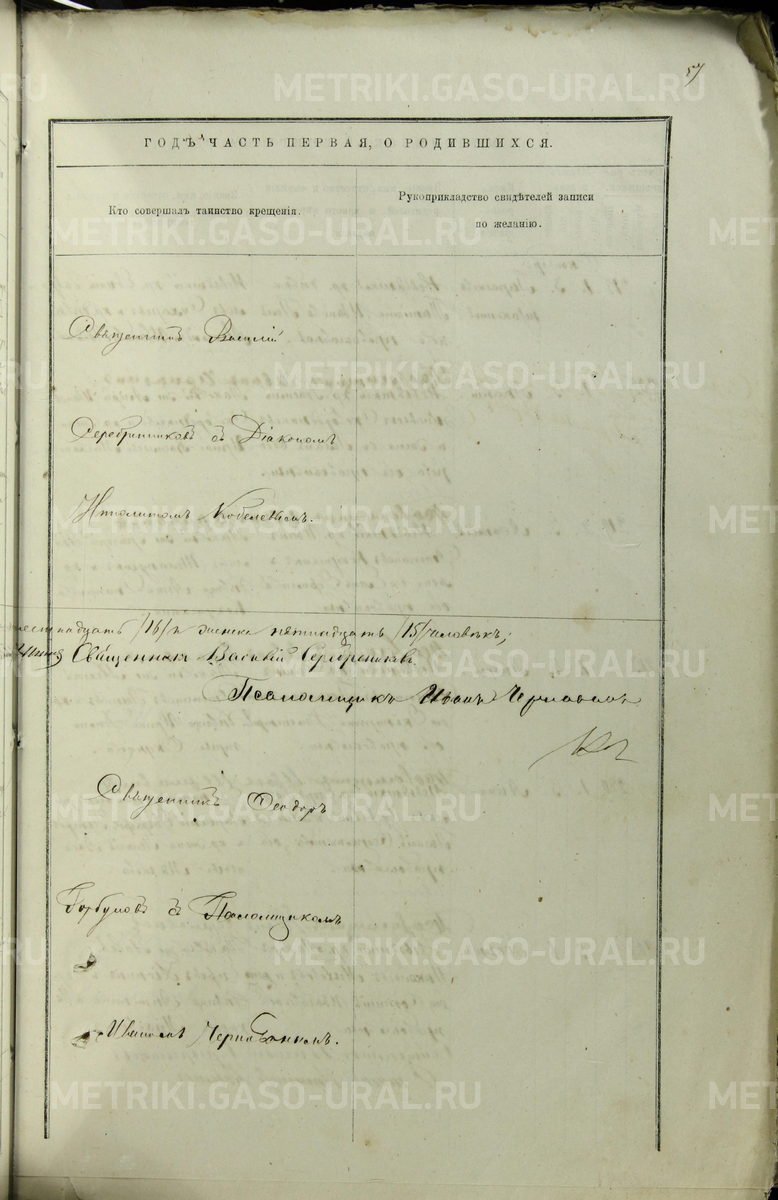 57
ГОДЪ ЧАСТЬ ПЕРВАЯ, О РОДИВШИХСЯ.
Кто совершалъ таинство крещенія.
Рукоприкладство свидѣтелей записи
по желанію.
Священникъ Василій
Серебренниковъ съ Діакономъ
Ипполитомъ
надцать /16/ и женска пятнадцать /15/ человѣкъ;
Священникъ Василій Серебрениковъ
Псаломщикъ Иванъ
Священникъ Феодоръ
Горбуновъ съ Псаломщикомъ
Иваномъ
METRIKI.GASO-URAL.RU